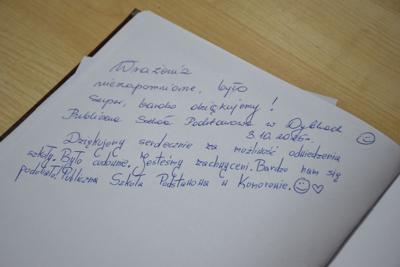 Wrażenia
niezapomniane, było
super, bardzo dziękujemy!
Publiczna Szkoła Podstawowa w Dylikach
3.10.2025r.
Dziękujemy serdecznie za możliwość odwiedzenia
szkoły. Było cudownie. Jesteśmy zachwyceni. Bardzo nam się
podobało! Publiczna Szkoła Podstawowa w Komorowie. ☺♡